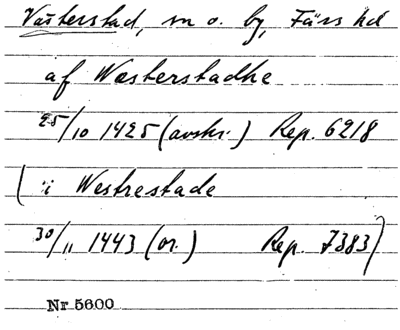 Västerstad, sn o. by, Färs hd
af Wæsterstadhe
25/10 1425 (avskr.) Rep. 6218
(i Westrestade
30/11 1443 (or.) Rep. 7383)
Nr 5600